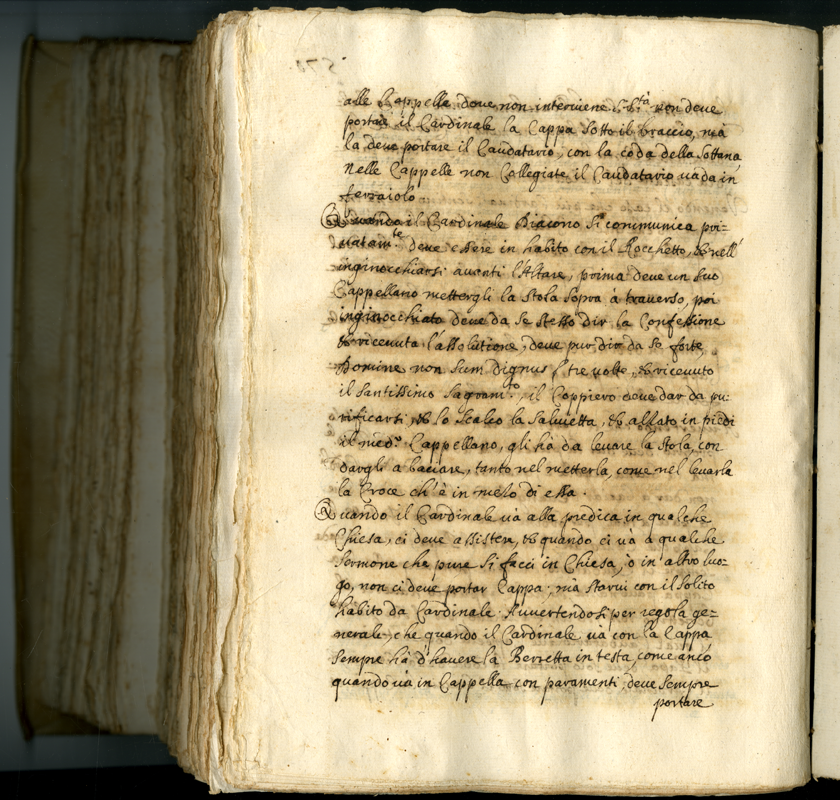 alle Cappelle dove non interviene S. S.tà non deve
portare il Cardinale la Cappa sotto il braccio, mà
la deve portare il Caudatario, con la coda della sottana
Nelle Cappelle non Collegiate il Caudatario vada in
ferraiolo.
Quando il Cardinale Diacono si communica pri-
vatam.te deve essere in habito con il Rocchetto, & nell'
inginocchiarsi avanti l'Altare, prima deve un suo
Cappellano mettergli la stola sopra à traverso, poi
inginocchiato deve da se stesso dir la Confessione
& ricevuta l'assolutione, deve pur dir da se forte,
Domine non sum dignus tre volte, & ricevuto
il Santissimo Sagram.to, il Coppiero deve dar da pu-
rificarsi, & lo Scalco la Salvietta, & alzato in piedi
il med.o Cappellano, gli hà da levare la stola, con
dargli a baciare, tanto nel metterla, come nel levarla
la Croce ch'è in mezo di essa.
Quando il Cardinale và alla predica in qualche
Chiesa, ci deve assistere, & quando ci và a qualche
sermone che pure si facci in Chiesa, ò in altro luo-
go, non ci deve portar Cappa, mà starvi con il solito
habito da Cardinale. Avvertendosi per regola ge-
nerale, che quando il Cardinale và con la Cappa
sempre hà d'havere la Berretta in testa, come anco
quando và in Cappella con paramenti, deve sempre
portare